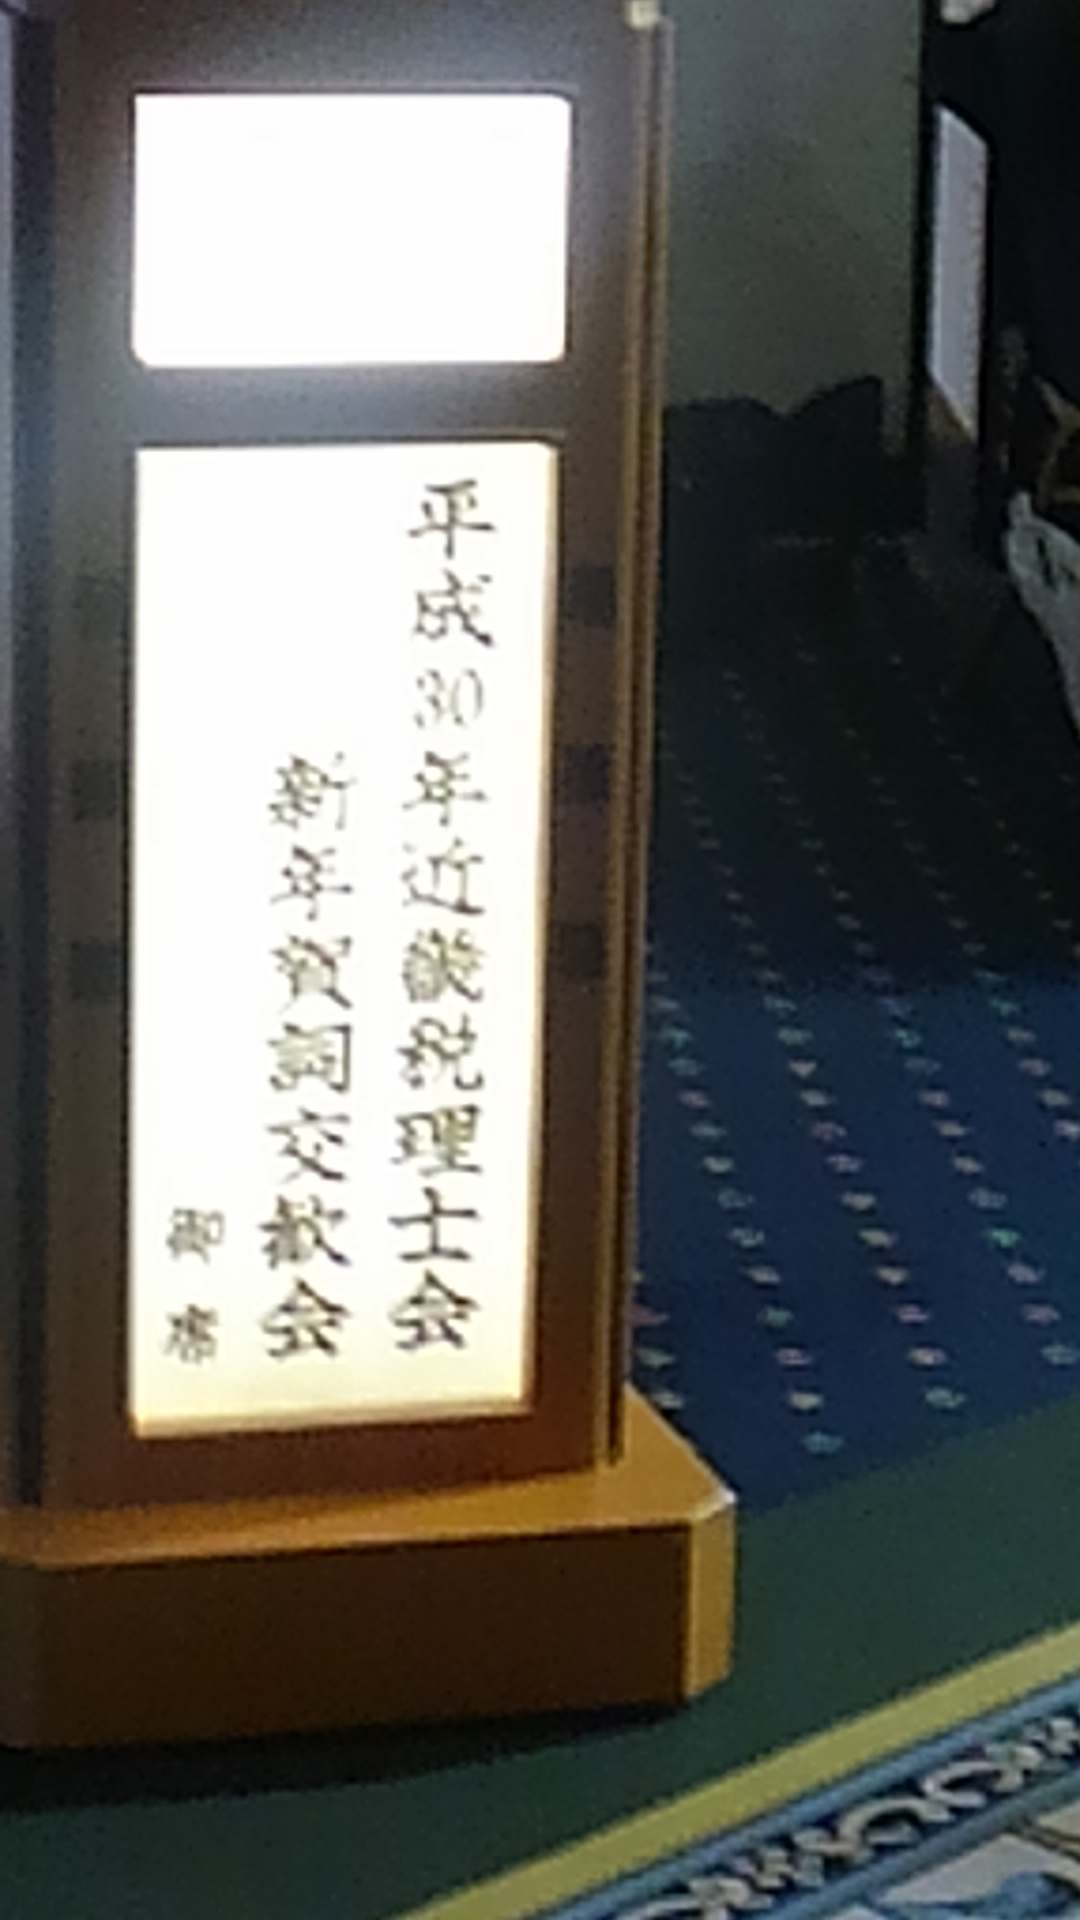 平成30年近畿税理士会
新年賀詞交歓会
御席